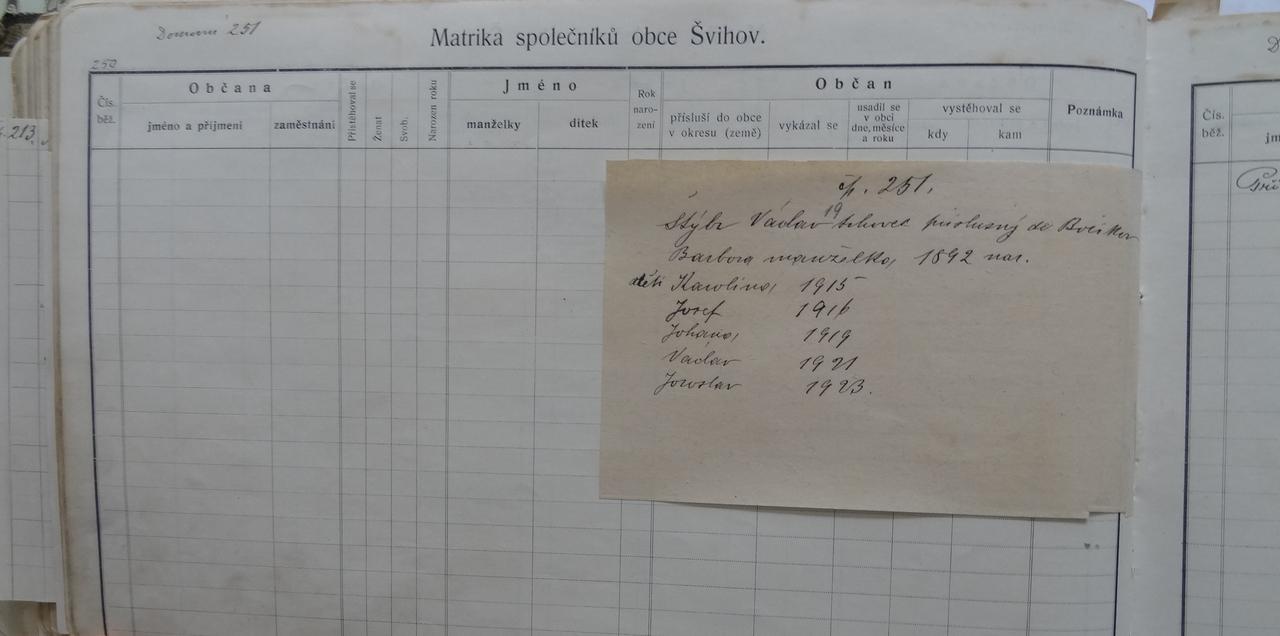 251
Matrika společníků obce Švihov.
250
Čís. běž.
Občana
jméno a příjmení
zaměstnání
Přistěhoval se
Ženat
Svob.
Narozen roku
Jméno
manželky
dítek
Rok naro- zení
Občan
přísluší do obce v okresu (země)
vykázal se
usadil se v obci dne, měsíce a roku
vystěhoval se
kdy
kam
Poznámka
Čís. běž.
213
čp. 251.
Štýbr Václav 19 příslušný do
Barbora manželka, 1892 nar.
děti Karolina, 1915
Josef 1916
Johana, 1919
Václav 1921
Jaroslav 1923.